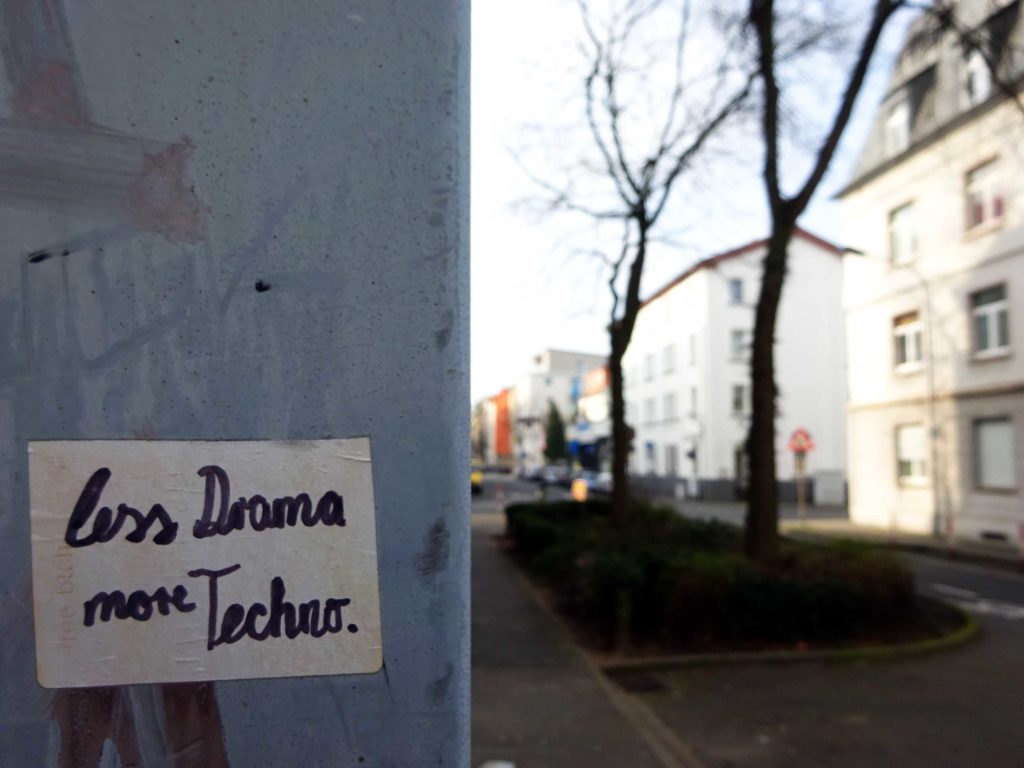 less Drama
more Techno.